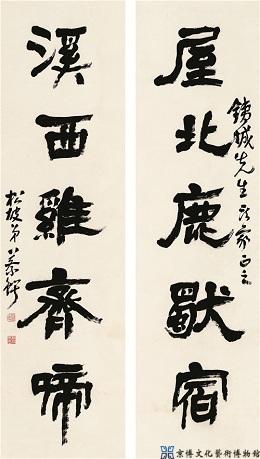 銕城先生家正之
屋北鹿獨宿
溪西雞齊啼
松坡弟蔡鍔
京博文化藝術博物館